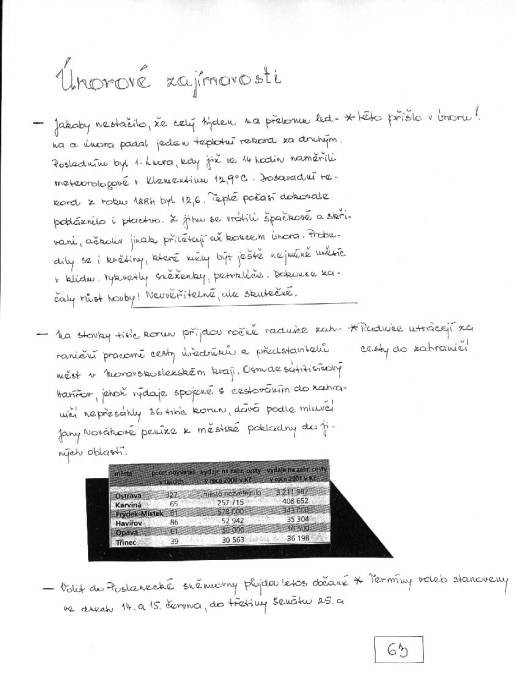 Únorové zajímavosti
— Jakoby nestačilo, že celý týden na přelomu led- * Léto přišlo v únoru!
na a února padal jeden teplotní rekord za druhým.
Posledním byl 1. únor, kdy již ve 14 hodin naměřili
meteorologové v Klementinu 12,9°C. Dosavadní re-
kord z roku byl 12,6. Teplé počasí dokonale
pobláznilo i ptactvo. Z jihu se vrátili špačkové a skři-
vani, ačkoliv jinak přilétají až koncem února. Probu-
dily se i květiny, které měly být ještě nejméně měsíc
v klidu. Vykvetly sněženky, petrklíče. Dokonce za-
čaly růst houby! Neuvěřitelné, ale skutečné.
— Na stovky tisíc korun přijdou ročně radnice zah- * Radnice utrácejí za
raniční pracovní cesty úředníků a představitelů cesty do zahraničí
měst v Moravskoslezském kraji. Osmdesátitisícový
Havířov, jehož výdaje spojené s cestováním do zahra-
ničí nepřesáhly 36 tisíc korun, dává podle mluvčí
Jany Novákové peníze z městské pokladny do ji-
ných oblastí.
město počet obyvatel výdaje na zahr. cesty výdaje na zahr. cesty
v tisících v roce 2000 v Kč v roce 2001 v Kč
Ostrava 327 město nezveřejnilo 3 211 987
Karviná 65 257 715 408 652
Frýdek-Místek 61
Havířov 86 52 942 35 304
Opava 61
Třinec 39 30 563 36 198
— Volit do Poslanecké sněmovny půjdou letos občané * Termíny voleb stanoveny
ve dnech 14. a 15. června, do třetiny Senátu 25. a
63